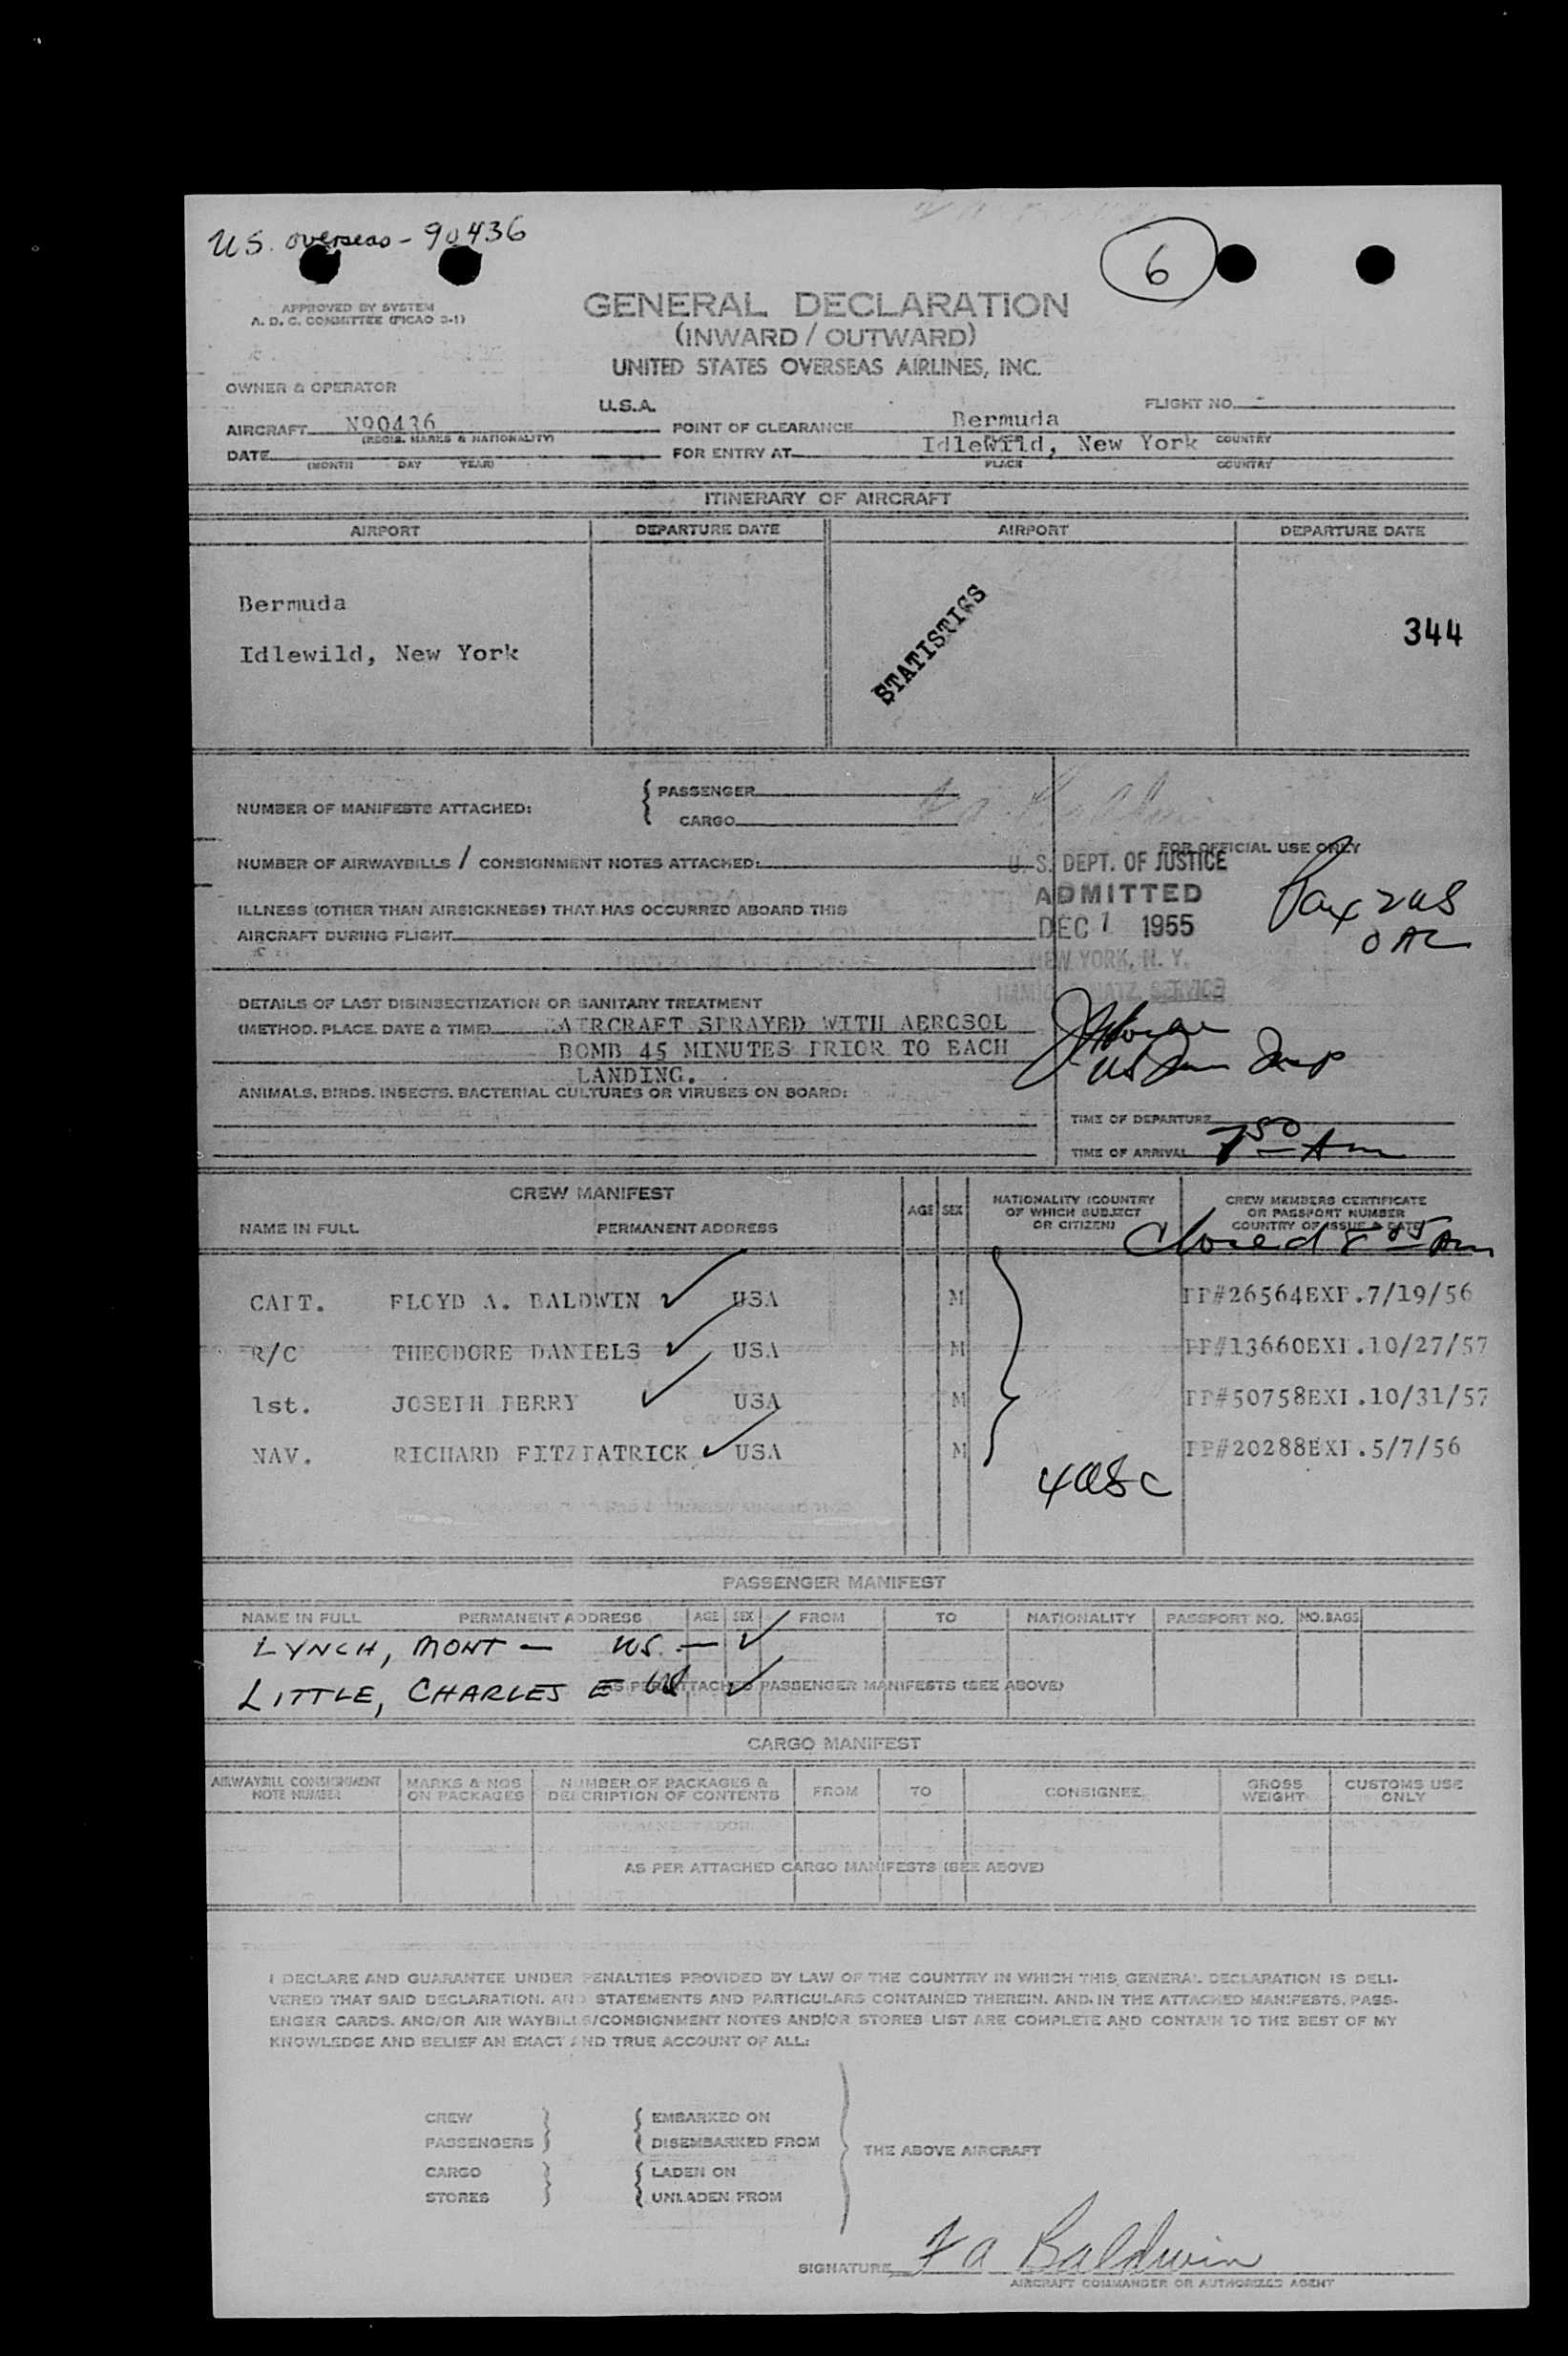 U.S. overseas - 90436
6
APPROVED BY SYSTEM
A. D. C. COMMITTEE (FICAO 3-1)
GENERAL DECLARATION
(INWARD / OUTWARD)
UNITED STATES OVERSEAS AIRLINES, INC.
OWNER & OPERATOR
U.S.A.
FLIGHT NO. -
AIRCRAFT N90436
(REGIS. MARKS & NATIONALITY)
POINT OF CLEARANCE Bermuda
PLACE COUNTRY
DATE
(MONTH DAY YEAR)
FOR ENTRY AT Idlewild, New York
PLACE COUNTRY
ITINERARY OF AIRCRAFT
AIRPORT DEPARTURE DATE AIRPORT DEPARTURE DATE
Bermuda
Idlewild, New York
STATISTICS
344
NUMBER OF MANIFESTS ATTACHED:
PASSENGER
CARGO
NUMBER OF AIRWAYBILLS / CONSIGNMENT NOTES ATTACHED:
ILLNESS (OTHER THAN AIRSICKNESS) THAT HAS OCCURRED ABOARD THIS
AIRCRAFT DURING FLIGHT
FOR OFFICIAL USE ONLY
U. S. DEPT. OF JUSTICE
ADMITTED
DEC 1 1955
NEW YORK, N. Y.
SERVICE
Pax 2 US
0 AL
DETAILS OF LAST DISINSECTIZATION OR SANITARY TREATMENT
(METHOD, PLACE, DATE & TIME) AIRCRAFT SPRAYED WITH AEROSOL
BOMB 45 MINUTES PRIOR TO EACH
LANDING.
ANIMALS, BIRDS, INSECTS, BACTERIAL CULTURES OR VIRUSES ON BOARD:
US Imm Insp
TIME OF DEPARTURE
TIME OF ARRIVAL 7 50 Am
CREW MANIFEST
NAME IN FULL PERMANENT ADDRESS
AGE SEX
NATIONALITY (COUNTRY
OF WHICH SUBJECT
OR CITIZEN)
CREW MEMBERS CERTIFICATE
OR PASSPORT NUMBER
COUNTRY OF ISSUE & DATE
Closed 8 05 Am
CAPT. FLOYD A. BALDWIN ✓ USA M PP#26564EXP.7/19/56
R/C THEODORE DANIELS ✓ USA M PP#13660EXP.10/27/57
1st. JOSEPH PERRY ✓ USA M PP#50758EXP.10/31/57
NAV. RICHARD FITZPATRICK ✓ USA M PP#20288EXP.5/7/56
4 USC
PASSENGER MANIFEST
NAME IN FULL PERMANENT ADDRESS AGE SEX FROM TO NATIONALITY PASSPORT NO. NO. BAGS
LYNCH, MONT — US. — ✓
LITTLE, CHARLES E US ✓
AS PER ATTACHED PASSENGER MANIFESTS (SEE ABOVE)
CARGO MANIFEST
AIRWAYBILL CONSIGNMENT
NOTE NUMBER
MARKS & NOS
ON PACKAGES
NUMBER OF PACKAGES &
DESCRIPTION OF CONTENTS
FROM TO CONSIGNEE
GROSS
WEIGHT
CUSTOMS USE
ONLY
AS PER ATTACHED CARGO MANIFESTS (SEE ABOVE)
I DECLARE AND GUARANTEE UNDER PENALTIES PROVIDED BY LAW OF THE COUNTRY IN WHICH THIS GENERAL DECLARATION IS DELI-
VERED THAT SAID DECLARATION, AND STATEMENTS AND PARTICULARS CONTAINED THEREIN, AND, IN THE ATTACHED MANIFESTS, PASS-
ENGER CARDS, AND/OR AIR WAYBILLS/CONSIGNMENT NOTES AND/OR STORES LIST ARE COMPLETE AND CONTAIN TO THE BEST OF MY
KNOWLEDGE AND BELIEF AN EXACT AND TRUE ACCOUNT OF ALL:
CREW
PASSENGERS
EMBARKED ON
DISEMBARKED FROM
THE ABOVE AIRCRAFT
CARGO
STORES
LADEN ON
UNLADEN FROM
SIGNATURE F A Baldwin
AIRCRAFT COMMANDER OR AUTHORIZED AGENT